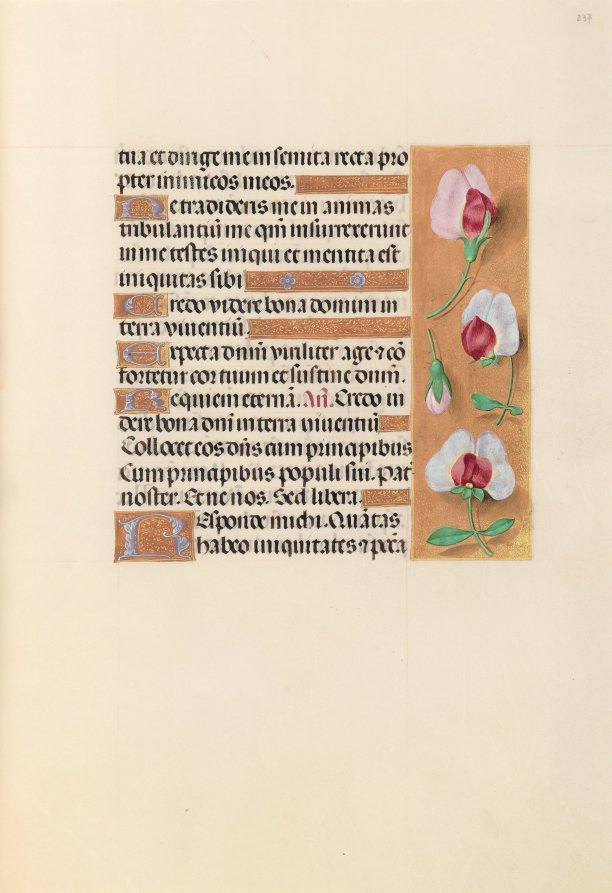 237
tua et dirige me in semita recta pro
pter inimicos meos.
Ne tradideris me in animas
tribulantiū me qm̄ insurrexerunt
in me testes iniqui et mentita est
iniquitas sibi
Credo videre bona domini in
terra viventiū.
Expecta dn̄m viriliter age ⁊ cō
fortetur cor tuum et sustine dnm̄.
Requiem eternā. Añ. Credo vi
dere bona dn̄i in terra viventiū
Collocet eos dn̄s cum principibus
Cum principibus populi sui. Pat̄
noster. Et ne nos. Sed libera.
Responde michi. Quātas
habeo iniquitates ⁊ pccā